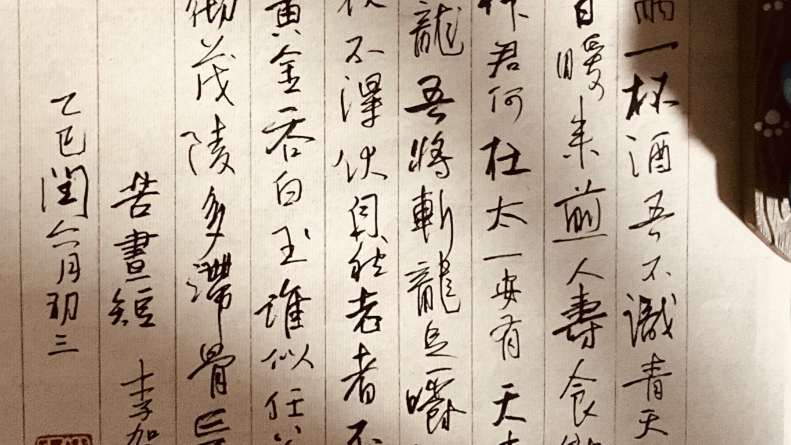 爾一杯酒吾不識青天
日暖来煎人壽食
神君何在太一安有天
龍吾將斬龍足嚼
夜不得伏自然老者不
黄金吞白玉誰似任公
徹茂陵多滯骨
苦晝短 李賀
乙巳閏六月初三